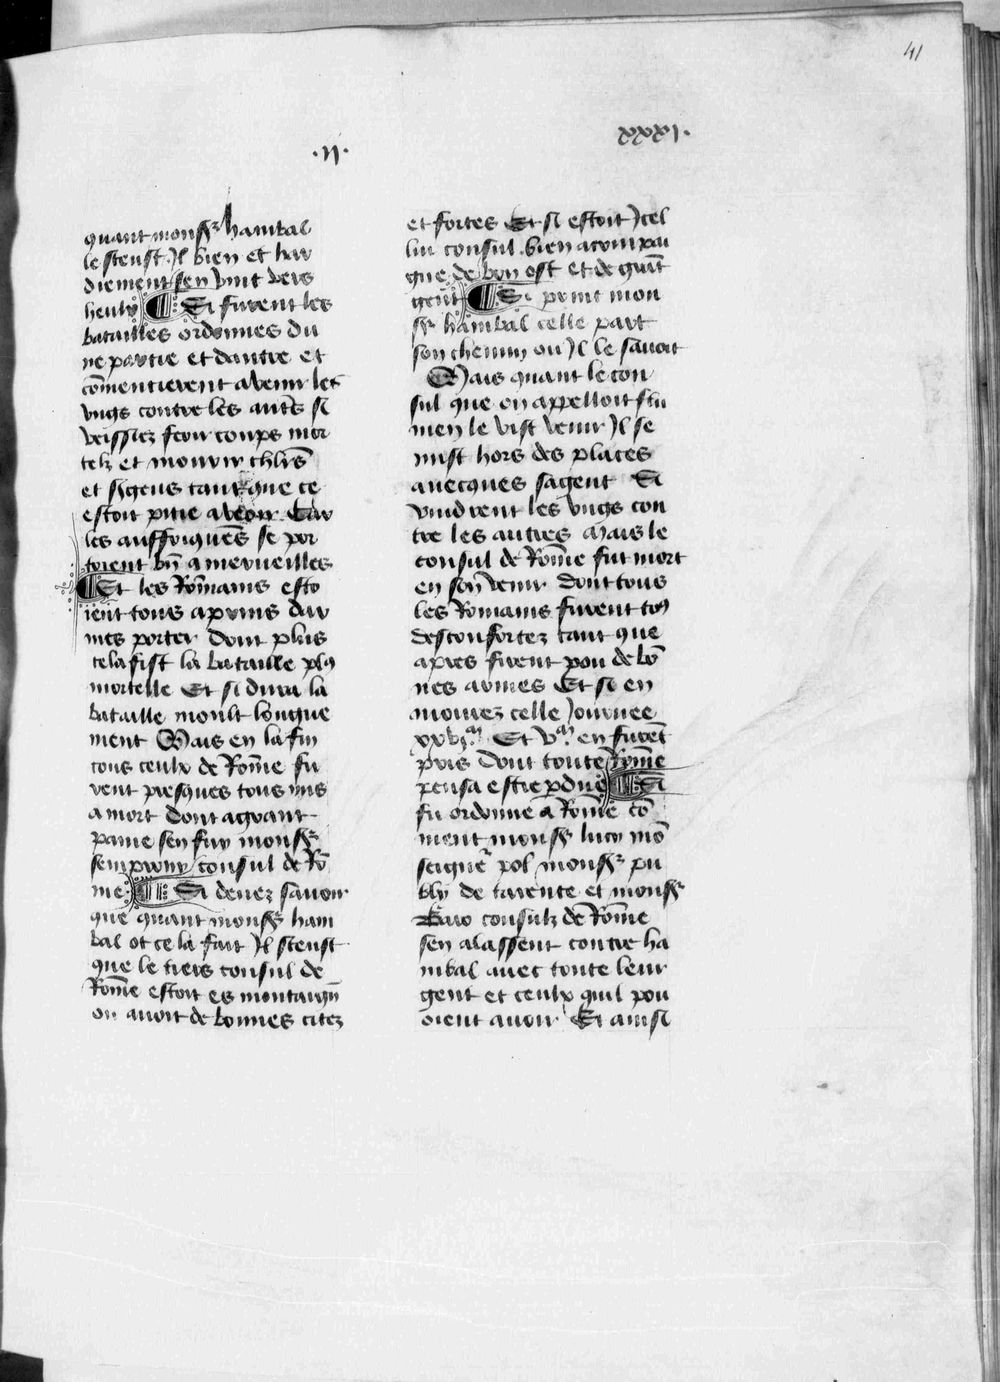 41
.II.
xxxxi.
quant monsr hanibal
le sceust Il bien et har
diement sen vint vers
heulx ¶ Si furent les
batailles ordonnes du
ne partie et dautre et
cōmencierent a venir les
vngs contre les autrēs si
veissiez ferir coups mor
telz et mourir chlrs̄
et sigens tant que ce
estoit pitie a veoir Car
les auffriquēs se por
toient bn̄ a merueilles
¶ Et les Rōmains esto
ient tous apruis dar
mes porter dont plus
cela fist la bataille plꝰ
mortelle Et si dura la
bataille moult longue
ment Mais en la fin
tous ceulx de Rōme fu
rent presques tous mis
a mort dont a grant
paine sen fuy monsr
semprony consul de Rō
me ¶ Si deuez sauoir
que quant monsr hani
bal ot ce la fait Il sceust
que le tiers consul de
Rōme estoit es montaign̄
ou auoit de bonnes citez
et fortes Et si estoit Icel
lui consul bien acompai
gne de bon ost et de grāt
gent ¶ Si print mon
sr hanibal celle part
son chemin ou Il le sauoit
Mais quant le con
sul que on appelloit flu
men le vist venir Il se
mist hors des places
auecques sa gent Si
vindrent les vngs con
tre les autres Mais le
consul de Rōme fut mort
en son venir dont tous
les Romains furent to9
desconfortez tant que
apres firent pou de bō
nes armes Et si en
mourez celle Journee
xxvi.m Et v.m en furēt
pris dont toute Rōme
pensa estre pdue ¶ Si
fu ordonne a Rōme cō
ment monsr lucy mō
seignr pol monsr pu
bly de tarente et monsr
Caro consulz de Rōme
sen alassent contre ha
nibal auec toute leur
gent et ceulx quil pou
oient auoir Et ainsi